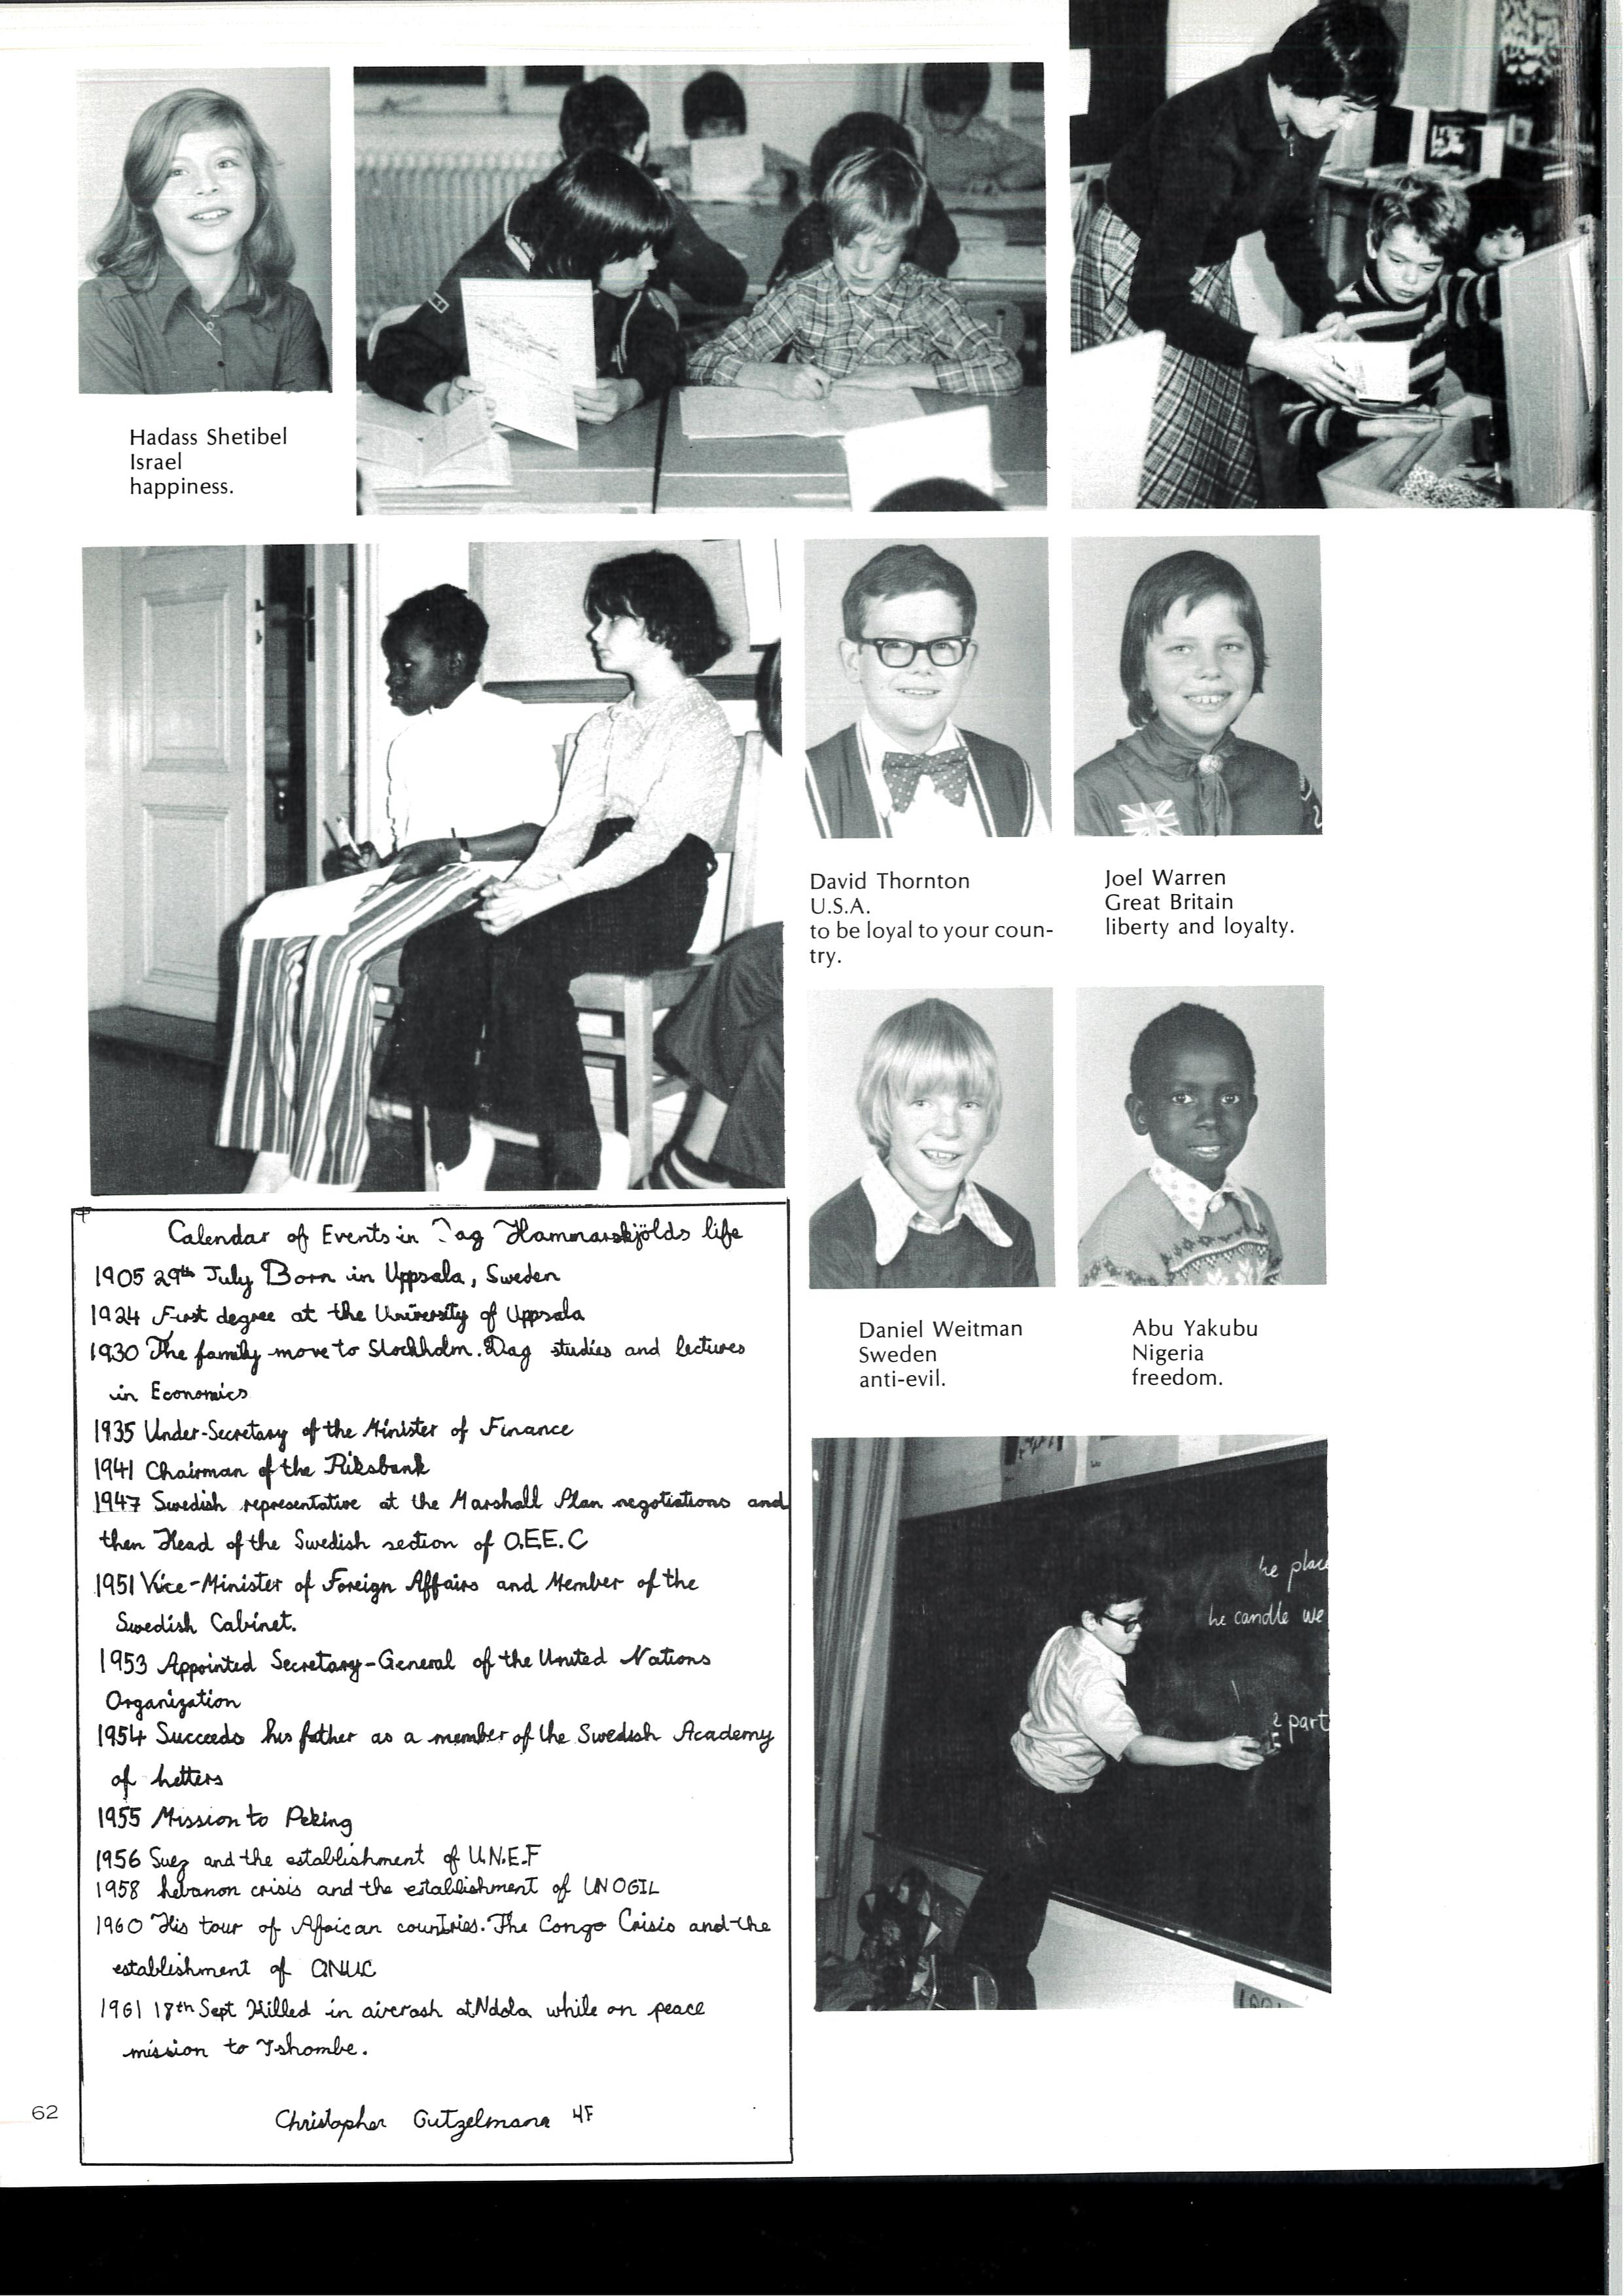 Hadass Shetibel
Israel
happiness.
David Thornton
U.S.A.
to be loyal to your coun-
try.
Joel Warren
Great Britain
liberty and loyalty.
Daniel Weitman
Sweden
anti-evil.
Abu Yakubu
Nigeria
freedom.
Calendar of Events in Dag Hammarskjölds life
1905 29th July Born in Uppsala, Sweden
1924 First degree at the University of Uppsala
1930 The family move to Stockholm. Dag studies and lectures
in Economics
1935 Under-Secretary of the Minister of Finance
1941 Chairman of the Riksbank
1947 Swedish representative at the Marshall Plan negotiations and
then Head of the Swedish section of O.E.E.C
1951 Vice-Minister of Foreign Affairs and Member of the
Swedish Cabinet.
1953 Appointed Secretary-General of the United Nations
Organization
1954 Succeeds his father as a member of the Swedish Academy
of Letters
1955 Mission to Peking
1956 Suez and the establishment of U.N.E.F
1958 Lebanon crisis and the establishment of UNOGIL
1960 His tour of African countries. The Congo Crisis and the
establishment of ONUC
1961 18th Sept Killed in aircrash at Ndola while on peace
mission to Tshombe.
Christopher Gutzelmann 4F
he place
he candle we
2 part
62